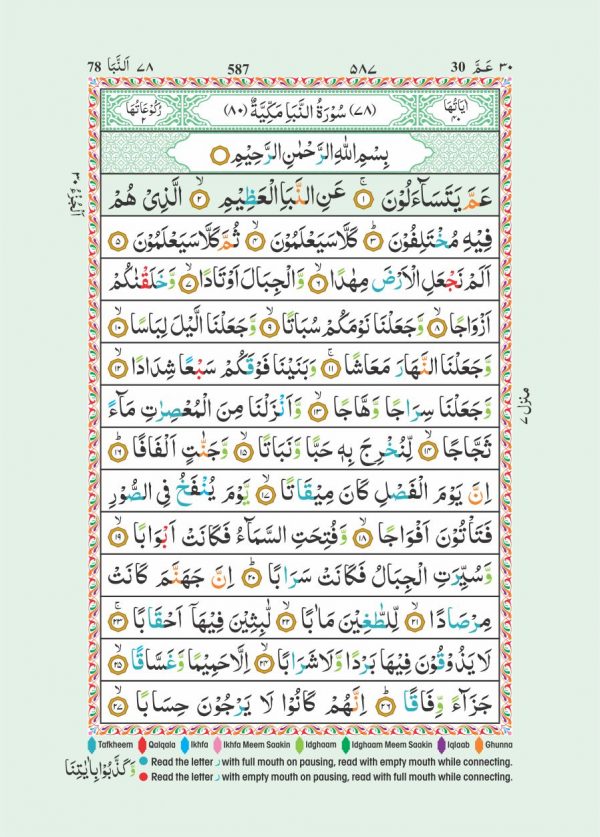 78 اَلنَّبَا ٧٨ 587 ٥٨٧ 30 عَمَّ ٣٠
رُكُوْعَاتُهَا ٢ (٧٨) سُوْرَةُ النَّبَاِ مَكِّيَّةٌ (٨٠) اٰيَاتُهَا ٤٠
بِسْمِ اللّٰهِ الرَّحْمٰنِ الرَّحِيْمِ
عَمَّ يَتَسَآءَلُوْنَ ۚ ١ عَنِ النَّبَاِ الْعَظِيْمِ ۙ ٢ الَّذِيْ هُمْ
فِيْهِ مُخْتَلِفُوْنَ ؕ ٣ كَلَّا سَيَعْلَمُوْنَ ۙ ٤ ثُمَّ كَلَّا سَيَعْلَمُوْنَ ٥
اَلَمْ نَجْعَلِ الْاَرْضَ مِهٰدًا ۙ ٦ وَّالْجِبَالَ اَوْتَادًا ۪ۙ ٧ وَّخَلَقْنٰكُمْ
اَزْوَاجًا ۙ ٨ وَّجَعَلْنَا نَوْمَكُمْ سُبَاتًا ۙ ٩ وَّجَعَلْنَا الَّيْلَ لِبَاسًا ۙ ١٠
وَّجَعَلْنَا النَّهَارَ مَعَاشًا ۪ ١١ وَّبَنَيْنَا فَوْقَكُمْ سَبْعًا شِدَادًا ۙ ١٢
وَّجَعَلْنَا سِرَاجًا وَّهَّاجًا ۪ۙ ١٣ وَّاَنْزَلْنَا مِنَ الْمُعْصِرٰتِ مَآءً
ثَجَّاجًا ۙ ١٤ لِّنُخْرِجَ بِهٖ حَبًّا وَّنَبَاتًا ۙ ١٥ وَّجَنّٰتٍ اَلْفَافًا ؕ ١٦
اِنَّ يَوْمَ الْفَصْلِ كَانَ مِيْقَاتًا ۙ ١٧ يَّوْمَ يُنْفَخُ فِي الصُّوْرِ
فَتَاْتُوْنَ اَفْوَاجًا ۙ ١٨ وَّفُتِحَتِ السَّمَآءُ فَكَانَتْ اَبْوَابًا ۙ ١٩
وَّسُيِّرَتِ الْجِبَالُ فَكَانَتْ سَرَابًا ؕ ٢٠ اِنَّ جَهَنَّمَ كَانَتْ
مِرْصَادًا ۪ۙ ٢١ لِّلطّٰغِيْنَ مَاٰبًا ۙ ٢٢ لّٰبِثِيْنَ فِيْهَاۤ اَحْقَابًا ۚ ٢٣
لَا يَذُوْقُوْنَ فِيْهَا بَرْدًا وَّلَا شَرَابًا ۙ ٢٤ اِلَّا حَمِيْمًا وَّغَسَّاقًا ۙ ٢٥
جَزَآءً وِّفَاقًا ؕ ٢٦ اِنَّهُمْ كَانُوْا لَا يَرْجُوْنَ حِسَابًا ۙ ٢٧
منزل ٧
Tafkheem Qalqala Ikhfa Ikhfa Meem Saakin Idghaam Idghaam Meem Saakin Iqlaab Ghunna
Read the letter ر with full mouth on pausing, read with empty mouth while connecting.
Read the letter ر with empty mouth on pausing, read with full mouth while connecting.
وَّكَذَّبُوْا بِاٰيٰتِنَا